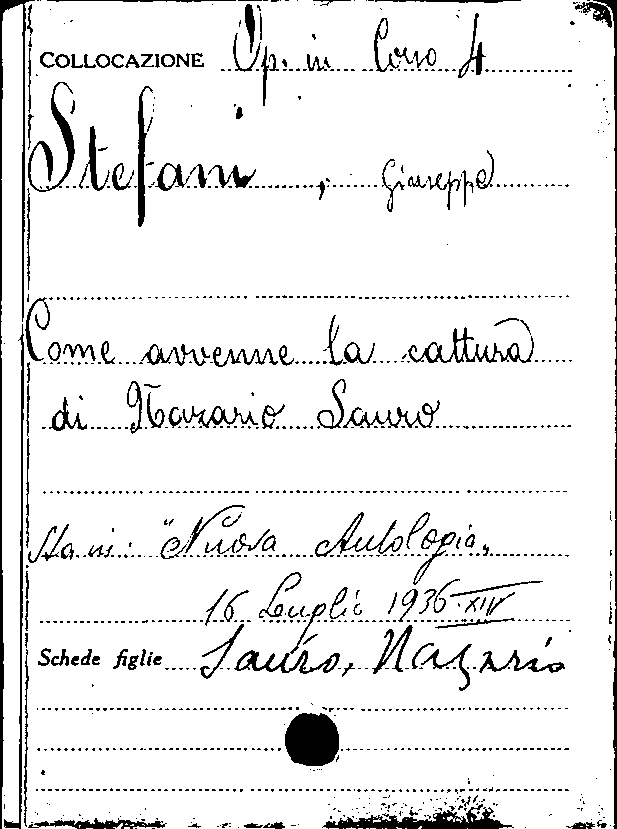 COLLOCAZIONE Op. in Corso 4
Stefani, Giuseppe
Come avvenne la cattura
di Nazario Sauro
Sta in: "Nuova Antologia"
16 Luglio 1936·XIV
Schede figlie Sauro, Nazario